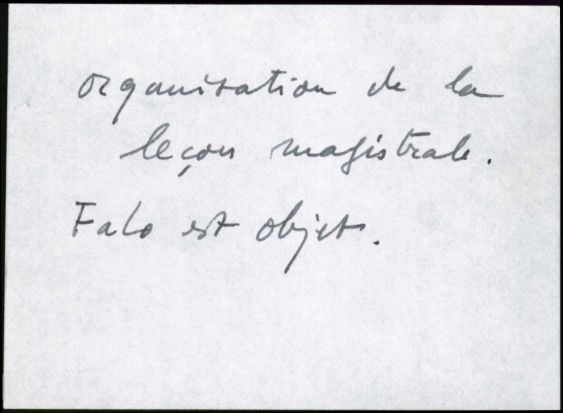 organisation de la
leçon magistrale.
Falo est objet.